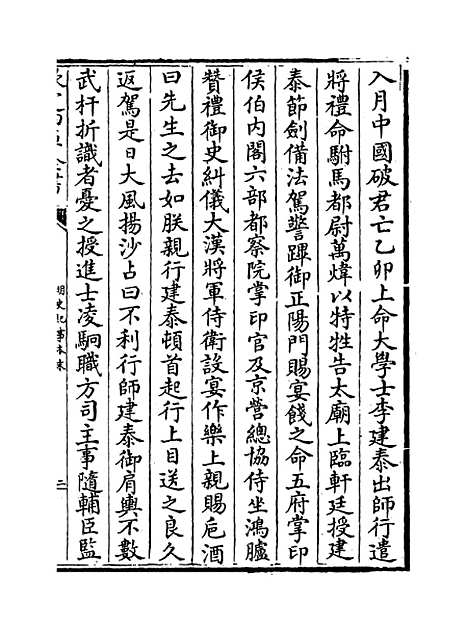 入月中國破君亡乙卯上命大學士李建泰出師行遣
將禮命駙馬都尉萬煒以特牲告太廟上臨軒廷授建
泰節劍備法駕警蹕御正陽門賜宴餞之命五府掌印
侯伯内閣六部都察院掌印官及京營總協侍坐鴻臚
贊禮御史糾儀大漢將軍侍衛設宴作樂上親賜卮酒
曰先生之去如朕親行建泰頓首起行上目送之良久
返駕是日大風揚沙占曰不利行師建泰御肩輿不數
武杆折識者憂之授進士凌駉職方司主事隨輔臣監
明史紀事本末
二